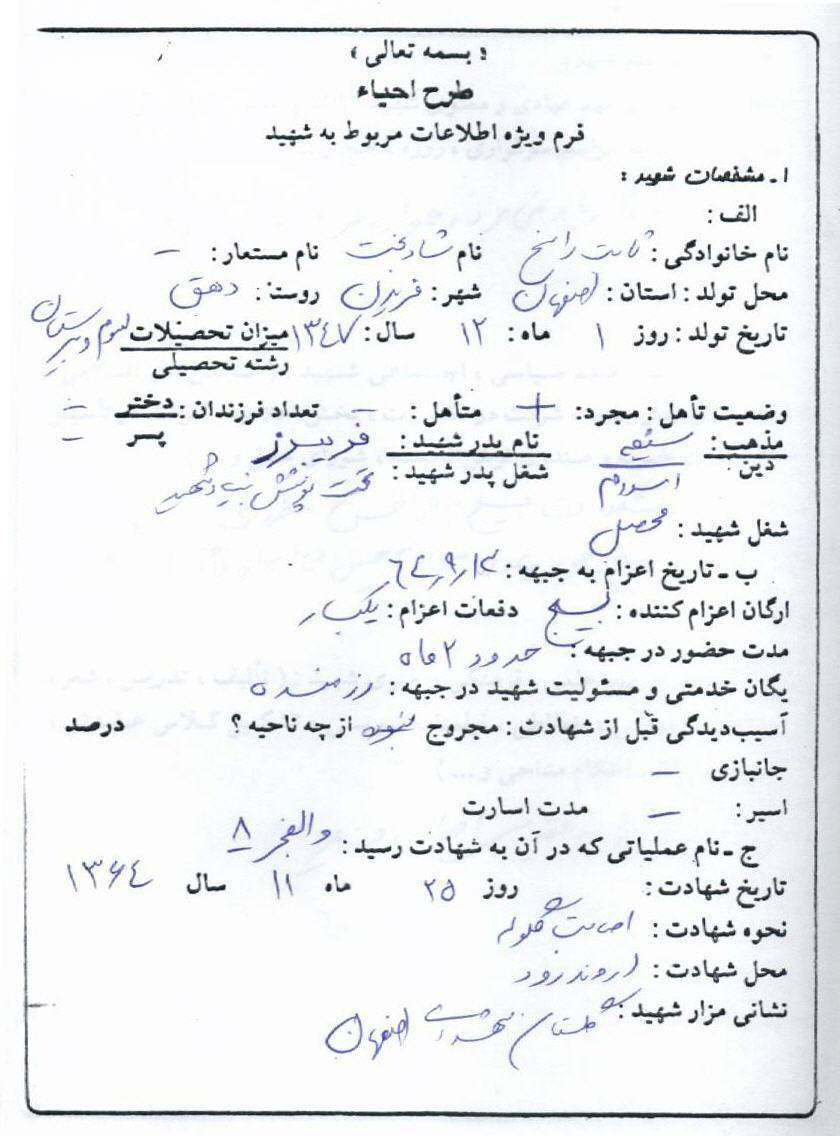 « بسمه تعالی »
طرح احیاء
فرم ویژه اطلاعات مربوط به شهید
۱ـ مشخصات شهید :
الف :
نام خانوادگی : ثابت راسخ نام شادبخت نام مستعار : –
محل تولد : استان : اصفهان شهر : فریدن روستا : دهق
تاریخ تولد : روز ۱ ماه : ۱۲ سال : ۱۳۴۷ میزان تحصیلات سوم دبیرستان
رشته تحصیلی
وضعیت تأهل : مجرد : + متأهل : – تعداد فرزندان : دختر –
پسر –
مذهب : شیعی نام پدر شهید : فریبرز
دین اسلام شغل پدر شهید :
شغل شهید : محصل
ب ـ تاریخ اعزام به جبهه : ۶۴٫۹٫۱۳
ارگان اعزام کننده : بسیج دفعات اعزام : یکبار
مدت حضور در جبهه : حدود ۲ ماه
یگان خدمتی و مسئولیت شهید در جبهه : رزمنده
آسیب‌دیدگی قبل از شهادت : مجروح نبوده از چه ناحیه ؟ درصد
جانبازی –
اسیر : – مدت اسارت
ج ـ نام عملیاتی که در آن به شهادت رسید : والفجر ۸
تاریخ شهادت : روز ۲۵ ماه ۱۱ سال ۱۳۶۴
نحوه شهادت : اصابت گلوله
محل شهادت : اروندرود
نشانی مزار شهید : گلستان شهدای اصفهان